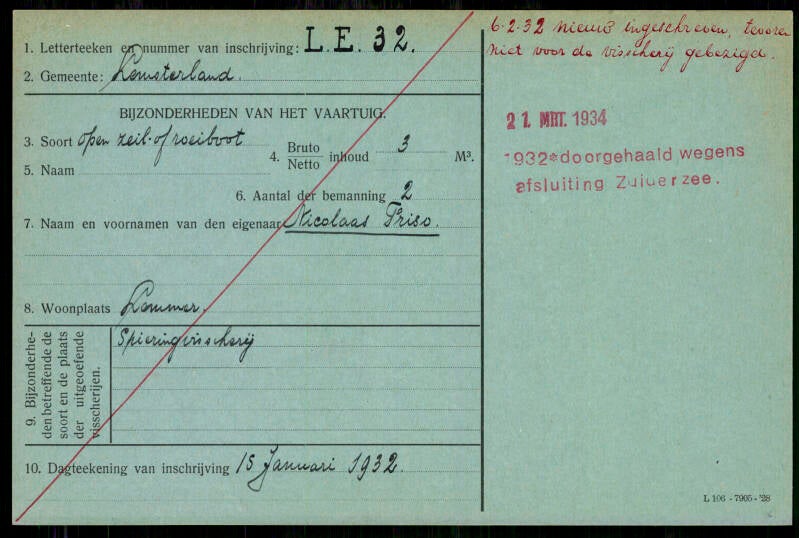 1. Letterteeken en nummer van inschrijving: L.E. 32.
2. Gemeente: Lemsterland.
BIJZONDERHEDEN VAN HET VAARTUIG.
3. Soort open zeil- of roeiboot
4. Bruto Netto inhoud 3 M³.
5. Naam
6. Aantal der bemanning 2
7. Naam en voornamen van den eigenaar Nicolaas Friso.
8. Woonplaats Lemmer.
9. Bijzonderhe-
den betreffende de
soort en de plaats
der uitgeoefende
visscherijen.
Spieringvisscherij
10. Dagteekening van inschrijving 15 Januari 1932.
6.2.32 nieuw ingeschreven, tevoren
niet voor de visscherij gebezigd.
21 MRT. 1934
1932 doorgehaald wegens
afsluiting Zuiderzee.
L 106 - 7905 - '28